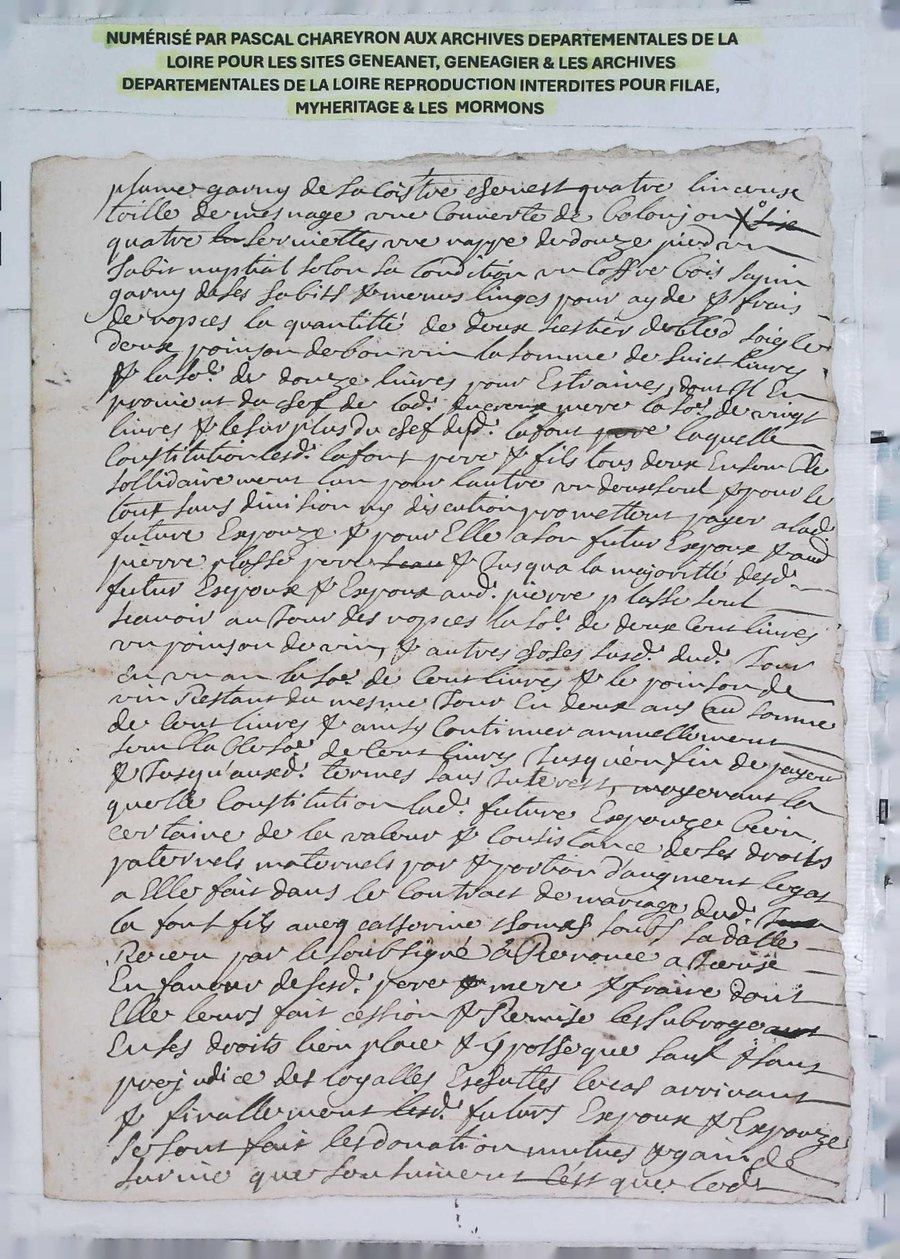 NUMÉRISÉ PAR PASCAL CHAREYRON AUX ARCHIVES DEPARTEMENTALES DE LA
LOIRE POUR LES SITES GENEANET, GENEAGIER & LES ARCHIVES
DEPARTEMENTALES DE LA LOIRE REPRODUCTION INTERDITES POUR FILAE,
MYHERITAGE & LES MORMONS
plume garny de sa coistre chevest quatre linceux
toille de mesnage une couverte de
quatre serviettes une nappe de douze pied un
habit nuptial selon sa condition un coffre bois sapin
garny de ses habits & menus linges pour ayde & frais
de nopces la quantitté de deux bled soigle
deux poinson de bon vin la somme de huict livres
& la so.e de douze livres pour Estraines, dont Il En
provient du chef de lad. mere la so.e de vingt
livres & le surplus du chef dud. lafont pere laquelle
Constitution lesd. lafont pere & fils tous deux Ensemble
sollidairement l'un pour l'autre un deux seul & pour le
tout sans division ny discution promettent payer a lad.
future Espouze & pour Elle a son futur Espoux & aud
pierre plasse pere & Jusqua la majoritté desd.
futur Espoux & Espoux aud. pierre plasse seul
scavoir au Jour des nopces la so.e de deux Cent livres
un poinson de vin, & autres choses susd. dud. Jour
En un an la so.e de Cent livres & le poinson de
vin Restant du mesme Jour En deux ans somme
de Cent livres & ainsy continuer annuellement
semblable so.e de Cent livres Jusqu'en fin de payem
& Jusqu'ausd. termes sans Interest, moyenant la
quelle Constitution lad. future Espouze bien
certaine de la valeur & Consistance de ses droits
paternels maternels par & portion d'augment legat
a Elle fait dans le Contract de mariage dud.
la font fils avecq catherine thomas soubs sa datte
Receu par le soubsigné a Renoncé
En faveur de sesd. pere & mere & fraire dont
Elle leurs fait cession & Remise les subroge
En ses droits lieu place & hypotheque sauf & sans
prejudice des loyalles Escheuttes le cas arrivant
& finallement lesd. futurs Espoux & Espouze
se sont fait les donation mutues & gain de
survie que s'ensuivent c'est que led.